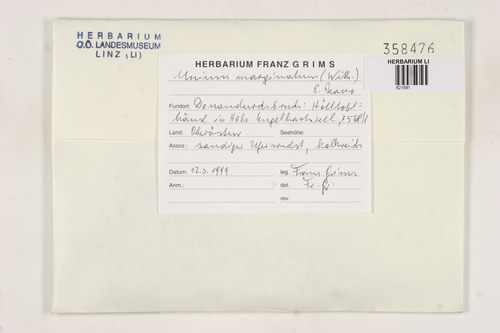 HERBARIUM
O.Ö. LANDESMUSEUM
LINZ (LI)
358476
HERBARIUM LI
821681
HERBARIUM FRANZ GRIMS
Mnium marginatum (With.)
P. Beauv.
Fundort: Donaudurchbruch:
in Höhe Engelhartszell, 7548/1
Land: Oberöster
Seehöhe:
Assoz.: sandiger Uferwald, kalkreich
Datum: 12.3.1999
leg. Franz Grims
Anm.:
det. Fr. Gr
rev.